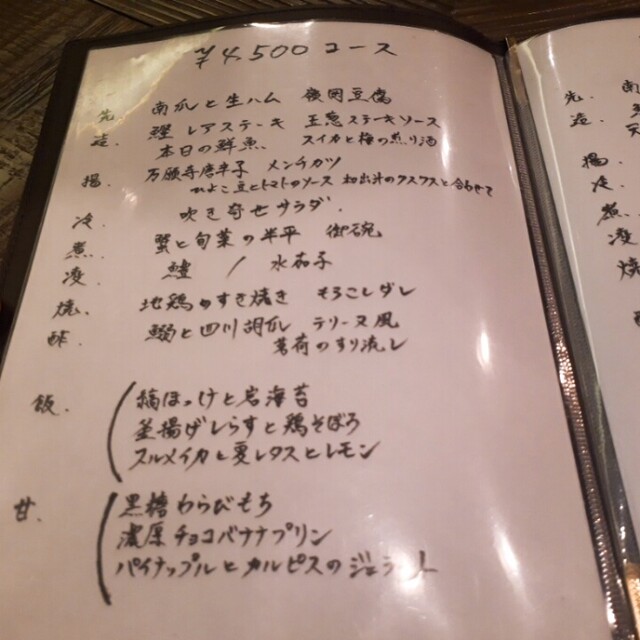 ¥4,500 コース
先. 南瓜と生ハム 豆腐
造. 鰹 レアステーキ 玉葱ステーキソース
本日の鮮魚. スイカと梅の煎り酒
揚. 万願寺唐辛子 メンチカツ
ひよこ豆とトマトのソース 和出汁のクスクスと合わせて
冷. 吹き寄せサラダ.
煮. 蟹と旬菜の半平 御碗
凌. 鱧 / 水茄子
焼. 地鶏のすき焼き もろこしダレ
酢. 鰯と四川胡瓜 テリーヌ風
茗荷のすり流し
飯. 縞ほっけと岩海苔
釜揚げしらすと鶏そぼろ
スルメイカと夏レタスとレモン
甘. 黒糖わらびもち
濃厚チョコバナナプリン
パイナップルとカルピスのジェラート
先. 南
造.
揚.
冷.
煮.
凌.
焼.